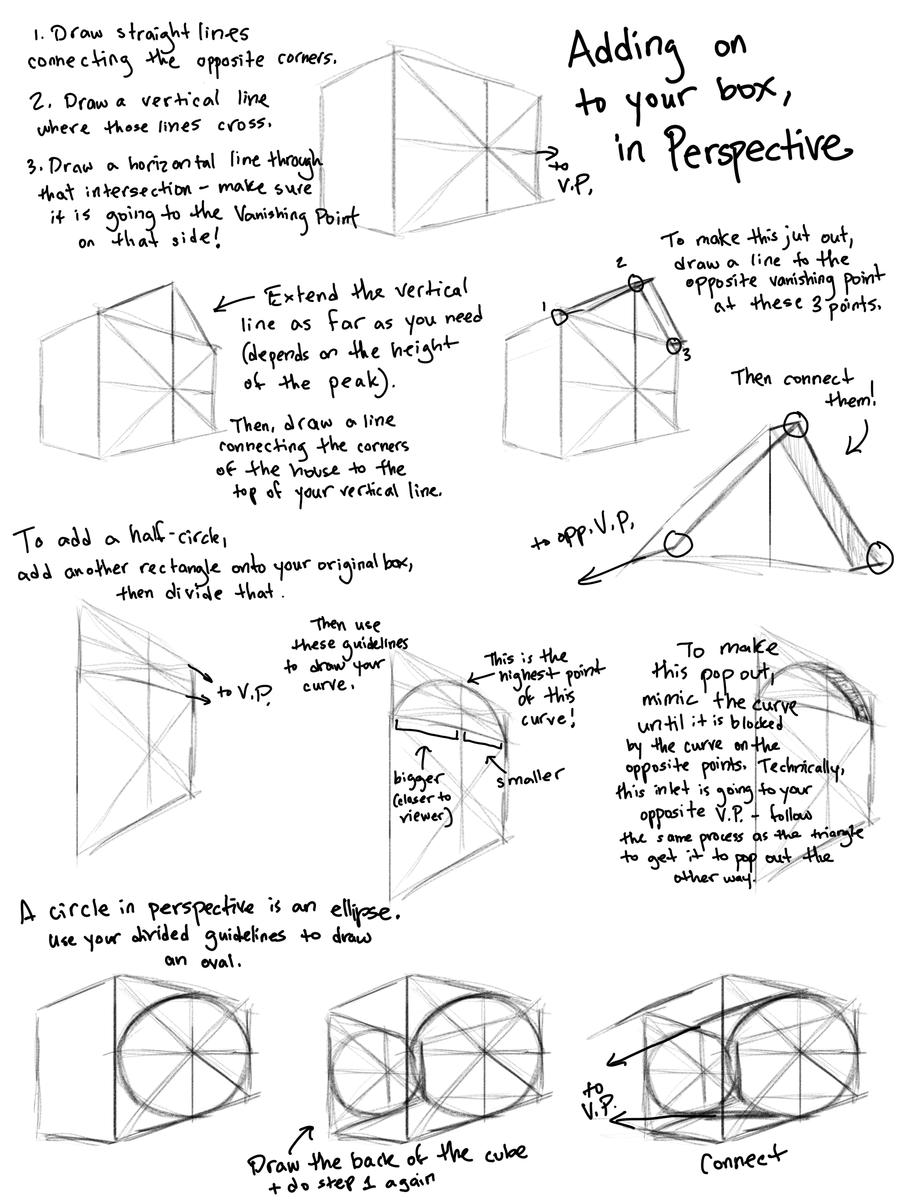 1. Draw straight lines
connecting the opposite corners.
2. Draw a vertical line
where those lines cross.
3. Draw a horizontal line through
that intersection - make sure
it is going to the Vanishing Point
on that side!
to
V.P.
Adding on
to your box,
in Perspective
Extend the vertical
line as far as you need
(depends on the height
of the peak).
Then, draw a line
connecting the corners
of the house to the
top of your vertical line.
1
2
3
To make this jut out,
draw a line to the
opposite vanishing point
at these 3 points.
Then connect
them!
to opp. V.P.
To add a half-circle,
add another rectangle onto your original box,
then divide that.
to V.P.
Then use
these guidelines
to draw your
curve.
This is the
highest point
of this
curve!
bigger
(closer to
viewer)
smaller
To make
this pop out,
mimic the curve
until it is blocked
by the curve on the
opposite points. Technically,
this inlet is going to your
opposite V.P. - follow
the same process as the triangle
to get it to pop out the
other way.
A circle in perspective is an ellipse.
Use your divided guidelines to draw
an oval.
Draw the back of the cube
+ do step 1 again
to
V.P.
Connect